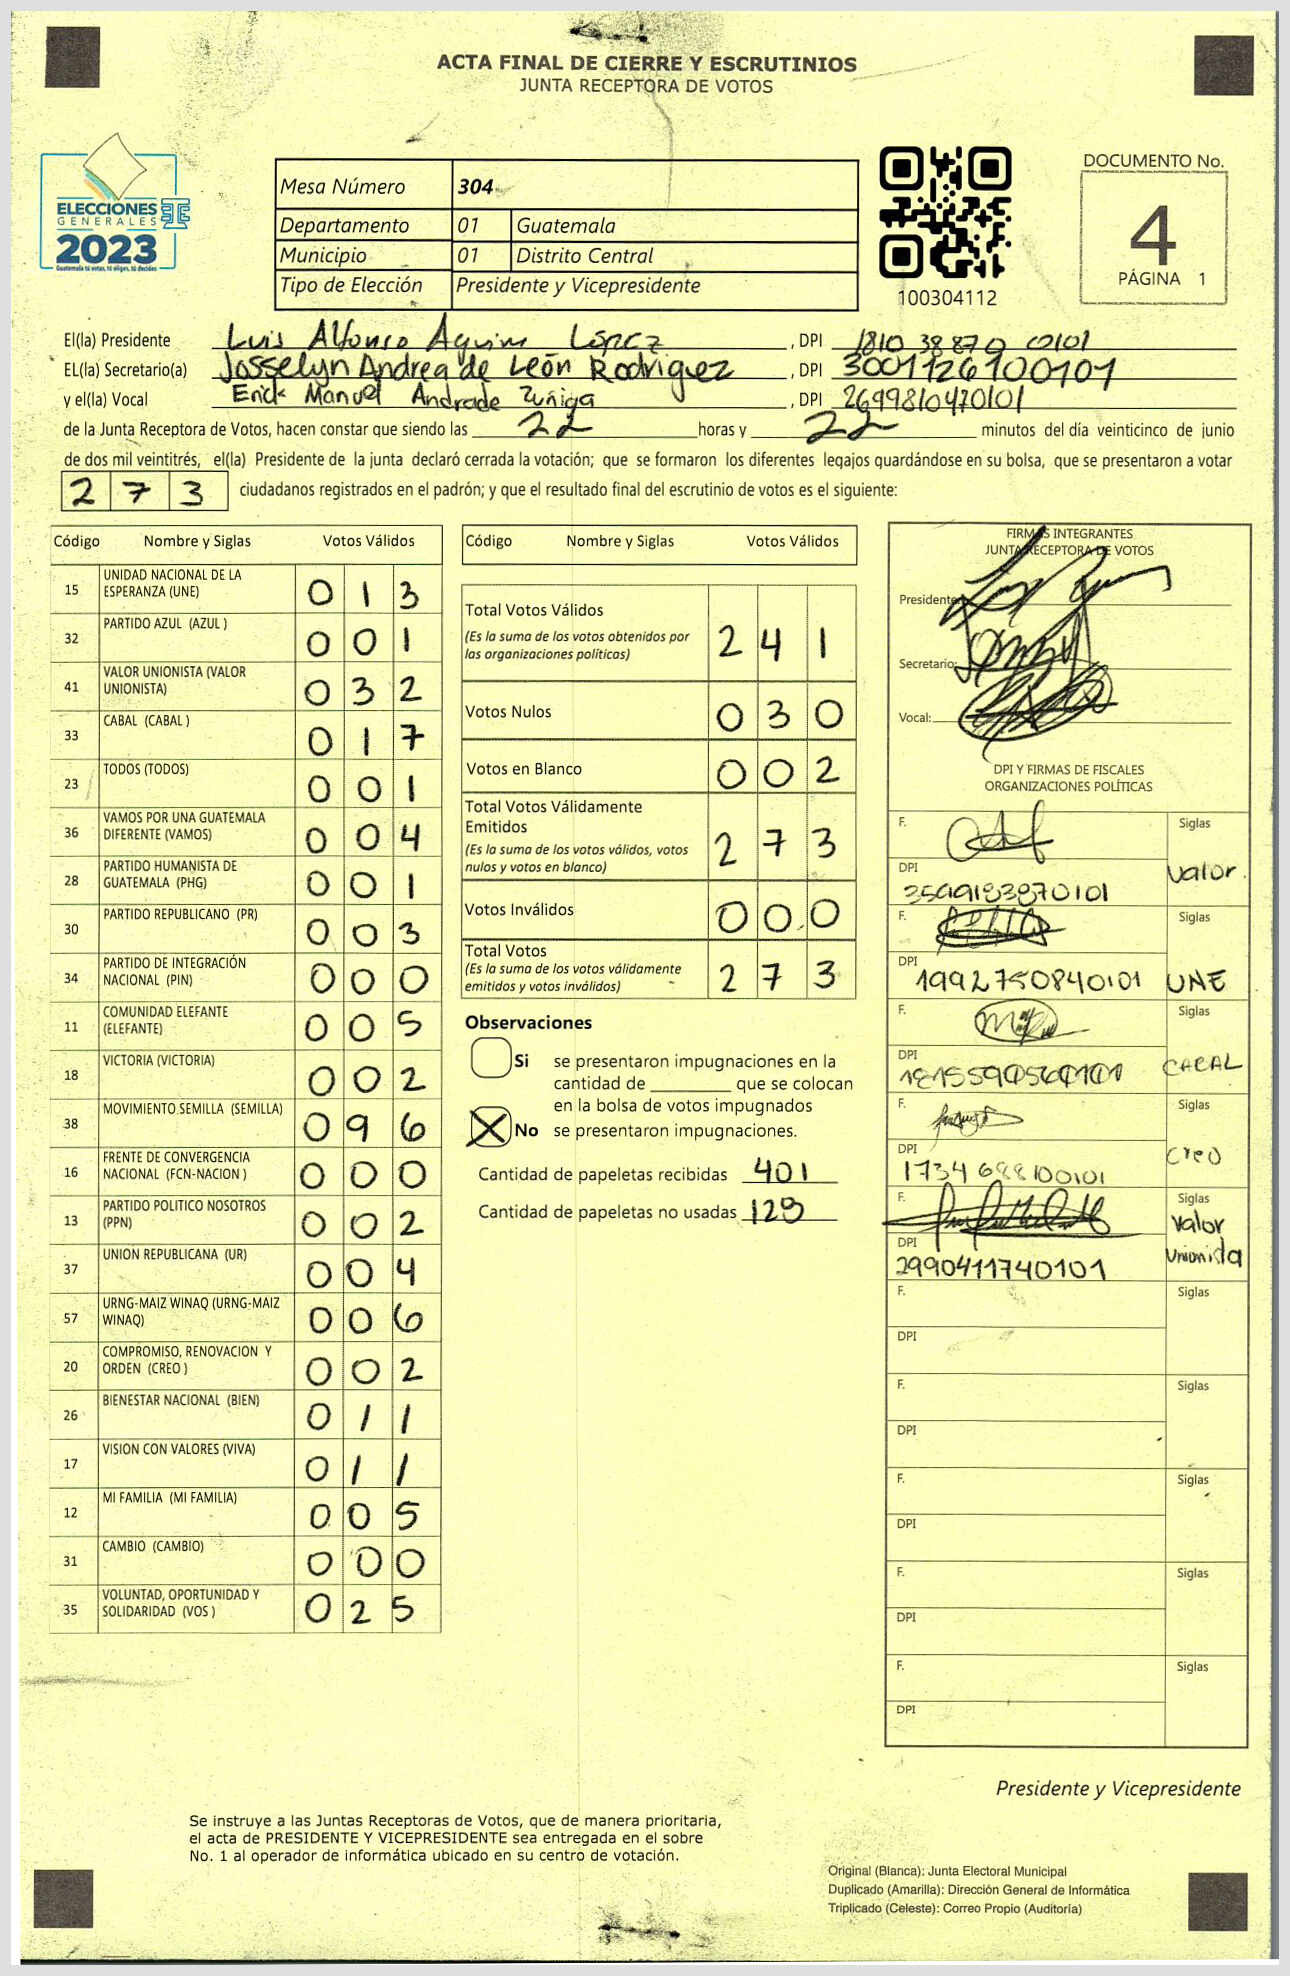 ACTA FINAL DE CIERRE Y ESCRUTINIOS
JUNTA RECEPTORA DE VOTOS
ELECCIONES
GENERALES
2023
Guatemala tú votas, tú eliges, tú decides
Mesa Número 304
Departamento 01 Guatemala
Municipio 01 Distrito Central
Tipo de Elección Presidente y Vicepresidente
100304112
DOCUMENTO No.
4
PÁGINA 1
El(la) Presidente Luis Alfonso Aguirre López, DPI 1810 38870 0101
EL(la) Secretario(a) Josselyn Andrea de León Rodriguez, DPI 3001126100101
y el(la) Vocal Erick Manuel Andrade Zuñiga, DPI 2699810470101
de la Junta Receptora de Votos, hacen constar que siendo las 22 horas y 22 minutos del día veinticinco de junio
de dos mil veintitrés, el(la) Presidente de la junta declaró cerrada la votación; que se formaron los diferentes legajos guardándose en su bolsa, que se presentaron a votar
273 ciudadanos registrados en el padrón; y que el resultado final del escrutinio de votos es el siguiente:
Código Nombre y Siglas Votos Válidos
15 UNIDAD NACIONAL DE LA ESPERANZA (UNE) 013
32 PARTIDO AZUL (AZUL ) 001
41 VALOR UNIONISTA (VALOR UNIONISTA) 032
33 CABAL (CABAL ) 017
23 TODOS (TODOS) 001
36 VAMOS POR UNA GUATEMALA DIFERENTE (VAMOS) 004
28 PARTIDO HUMANISTA DE GUATEMALA (PHG) 001
30 PARTIDO REPUBLICANO (PR) 003
34 PARTIDO DE INTEGRACIÓN NACIONAL (PIN) 000
11 COMUNIDAD ELEFANTE (ELEFANTE) 005
18 VICTORIA (VICTORIA) 002
38 MOVIMIENTO SEMILLA (SEMILLA) 096
16 FRENTE DE CONVERGENCIA NACIONAL (FCN-NACION ) 000
13 PARTIDO POLITICO NOSOTROS (PPN) 002
37 UNION REPUBLICANA (UR) 004
57 URNG-MAIZ WINAQ (URNG-MAIZ WINAQ) 006
20 COMPROMISO, RENOVACION Y ORDEN (CREO ) 002
26 BIENESTAR NACIONAL (BIEN) 011
17 VISION CON VALORES (VIVA) 011
12 MI FAMILIA (MI FAMILIA) 005
31 CAMBIO (CAMBIO) 000
35 VOLUNTAD, OPORTUNIDAD Y SOLIDARIDAD (VOS ) 025
Código Nombre y Siglas Votos Válidos
Total Votos Válidos 241
(Es la suma de los votos obtenidos por
las organizaciones políticas)
Votos Nulos 030
Votos en Blanco 002
Total Votos Válidamente
Emitidos 273
(Es la suma de los votos válidos, votos
nulos y votos en blanco)
Votos Inválidos 000
Total Votos 273
(Es la suma de los votos válidamente
emitidos y votos inválidos)
Observaciones
Si se presentaron impugnaciones en la
cantidad de ________ que se colocan
en la bolsa de votos impugnados
X No se presentaron impugnaciones.
Cantidad de papeletas recibidas 401
Cantidad de papeletas no usadas 128
FIRMAS INTEGRANTES
JUNTA RECEPTORA DE VOTOS
Presidente:
Secretario:
Vocal:
DPI Y FIRMAS DE FISCALES
ORGANIZACIONES POLÍTICAS
F. Siglas
valor.
DPI 3599183870101
F. Siglas
DPI 1992750840101 UNE
F. Siglas
DPI CABAL
F. Siglas
DPI 1734688100101 Creo
F. Siglas
valor
DPI 2990411740101 Unionista
F. Siglas
DPI
F. Siglas
DPI
F. Siglas
DPI
F. Siglas
DPI
F. Siglas
DPI
Presidente y Vicepresidente
Se instruye a las Juntas Receptoras de Votos, que de manera prioritaria,
el acta de PRESIDENTE Y VICEPRESIDENTE sea entregada en el sobre
No. 1 al operador de informática ubicado en su centro de votación.
Original (Blanca): Junta Electoral Municipal
Duplicado (Amarilla): Dirección General de Informática
Triplicado (Celeste): Correo Propio (Auditoría)